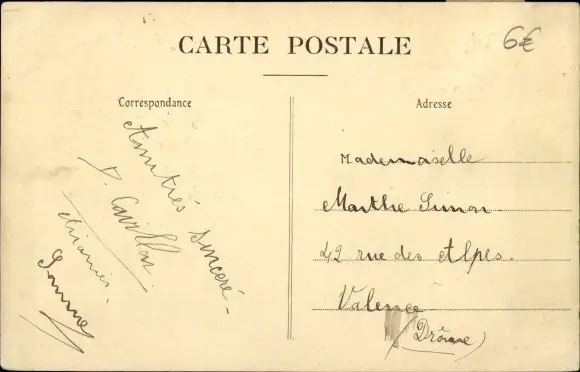 CARTE POSTALE
6€
Correspondance
Amitiés sincère-
Somme
Adresse
Mademoiselle
Marthe Simon
42 rue des Alpes.
Valence
(Drôme)